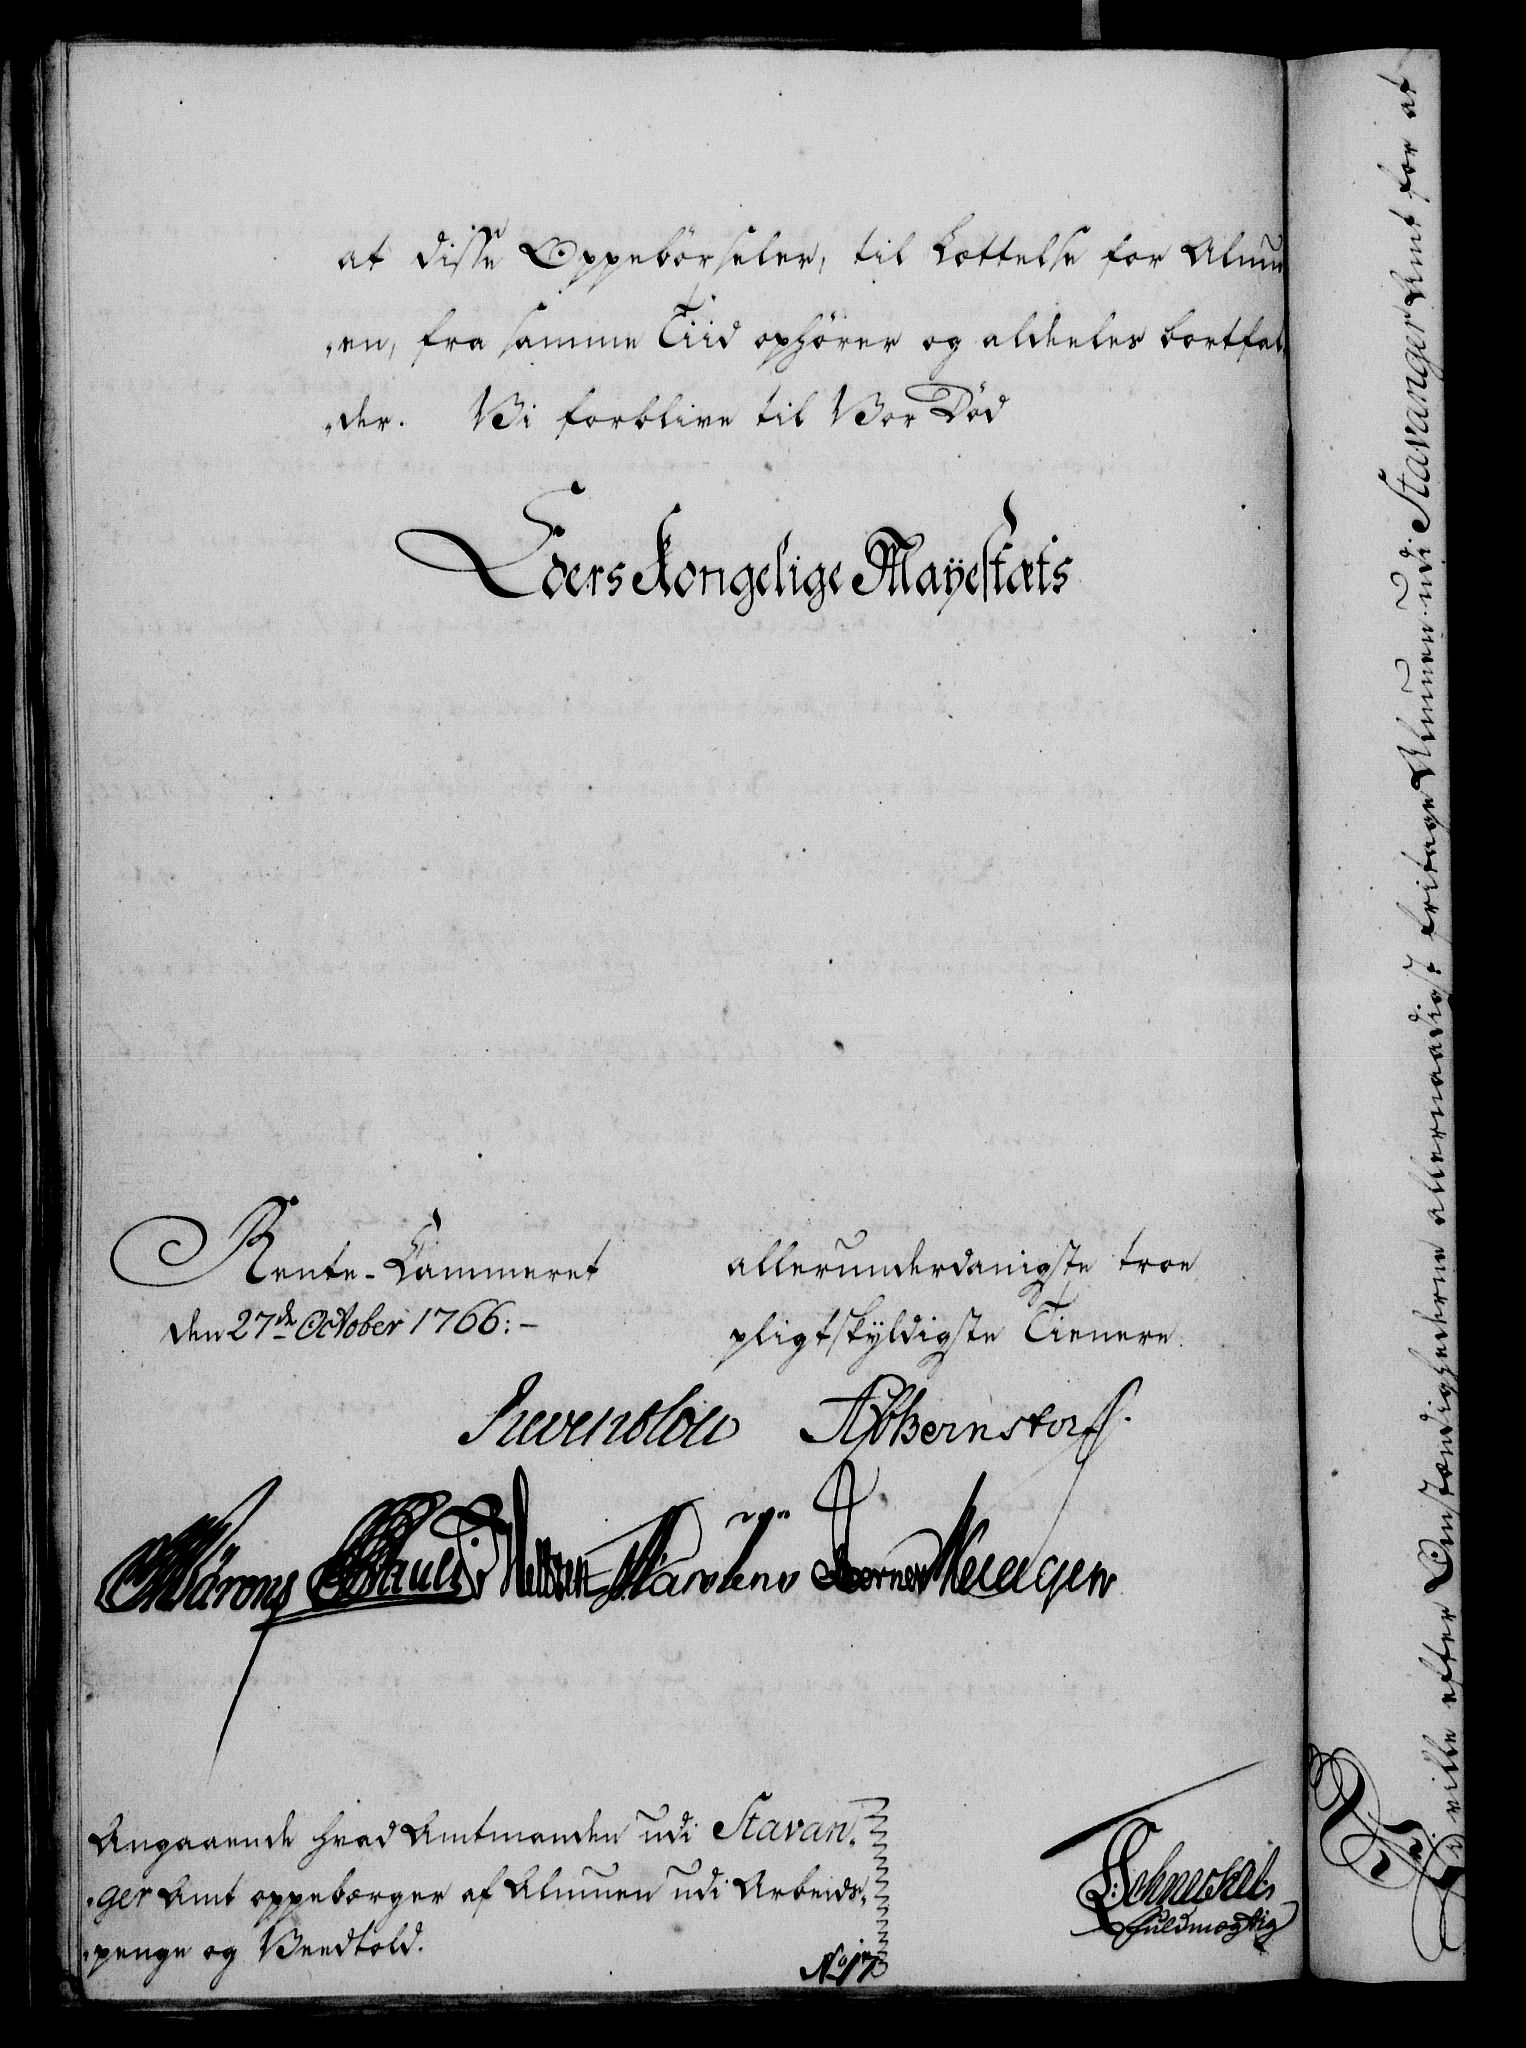 at disse Oppebörseler, til Lættelse for Almu
„en, fra samme Tiid ophörer og aldeeles bortfal„
„der. Vi forblive til Vor Död
Eders Kongelige Mayestæts
Rente-Cammeret
den 27de October 1766:-
allerunderdanigste troe
pligtskyldigste Tienere
Reventlou ABernstorff.
Pauli Martens Berner
Angaaende hvad Amtmanden udi Stavan„
„ger Amt oppebærger af Almuen udi Arbeids„
„penge og Veedtold.
No 17
Schneckel
fuldmægtig
Vi ville efter Omstændighederne allernaadigst fritage Almuen udi Stavanger Amt for at